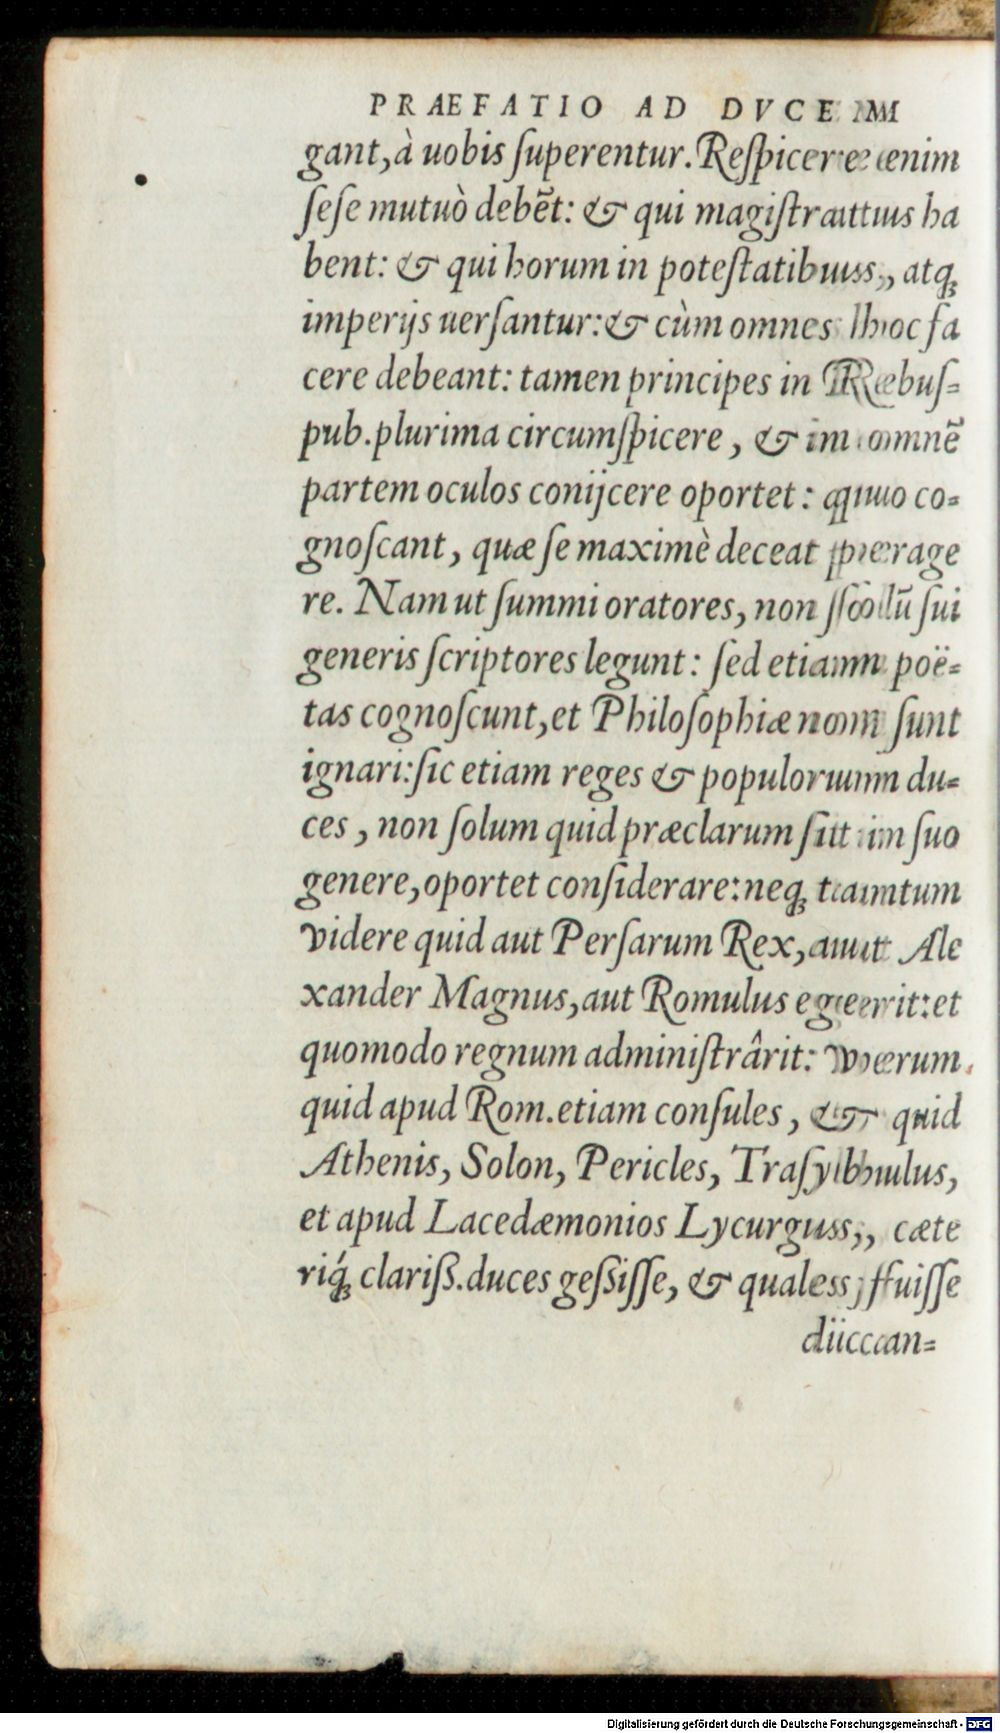 PRAEFATIO AD DVCEM
gant, à uobis ſuperentur. Reſpicere enim
ſeſe mutuò debẽt: & qui magiſtratus ha
bent: & qui horum in poteſtatibus, atq;
imperijs uerſantur: & cùm omnes hoc fa
cere debeant: tamen principes in Rebuſ-
pub. plurima circumſpicere, & in omnẽ
partem oculos conijcere oportet: quo co-
gnoſcant, quæ ſe maximè deceat perage
re. Nam ut ſummi oratores, non ſolũ ſui
generis ſcriptores legunt: ſed etiam poë-
tas cognoſcunt, et Philoſophiæ non ſunt
ignari: ſic etiam reges & populorum du-
ces, non ſolum quid præclarum ſit in ſuo
genere, oportet conſiderare: neq; tantum
videre quid aut Perſarum Rex, aut Ale
xander Magnus, aut Romulus egerit: et
quomodo regnum adminiſtrârit: verum
quid apud Rom. etiam conſules, & quid
Athenis, Solon, Pericles, Traſybulus,
et apud Lacedæmonios Lycurgus, cæte
riq́; clariß. duces geßiſſe, & quales fuiſſe
dũcan-
Digitalisierung gefördert durch die Deutsche Forschungsgemeinschaft - DFG